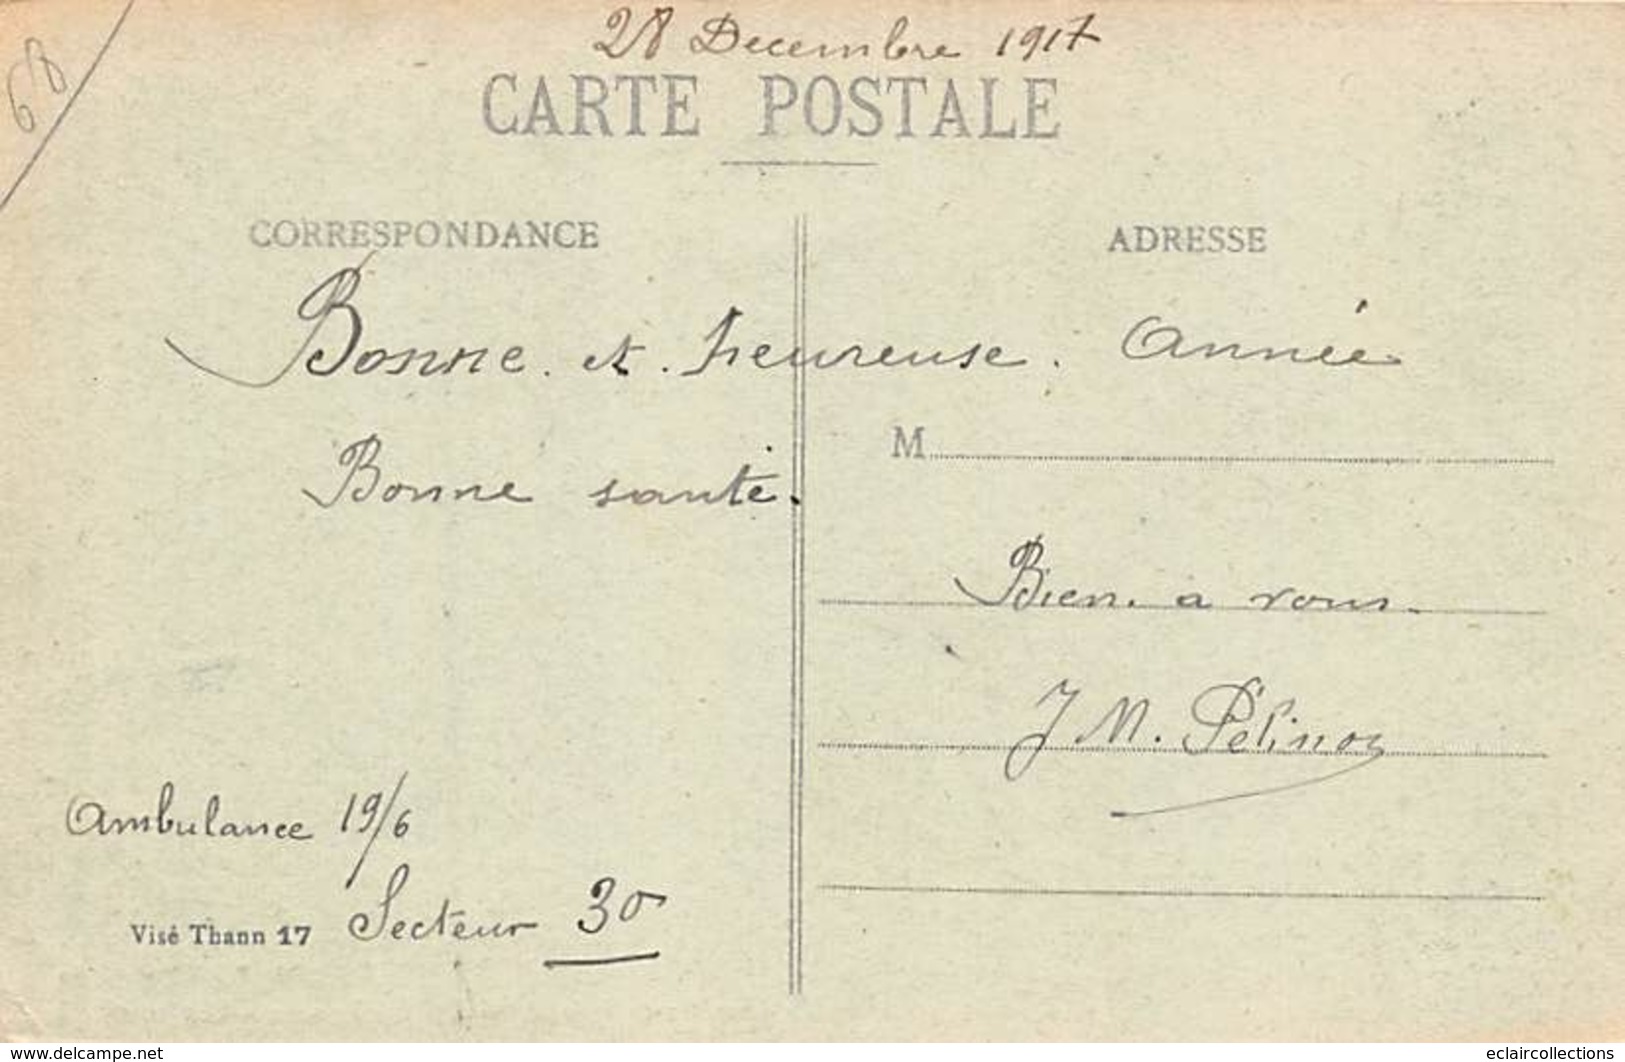 68
28 Decembre 1917
CARTE POSTALE
CORRESPONDANCE
ADRESSE
Bonne et heureuse année
Bonne santé.
M
Bien a vous.
J M. Pélinoz
Ambulance 19/6
Visé Thann 17 Secteur 30
www.delcampe.net
eclaircollections